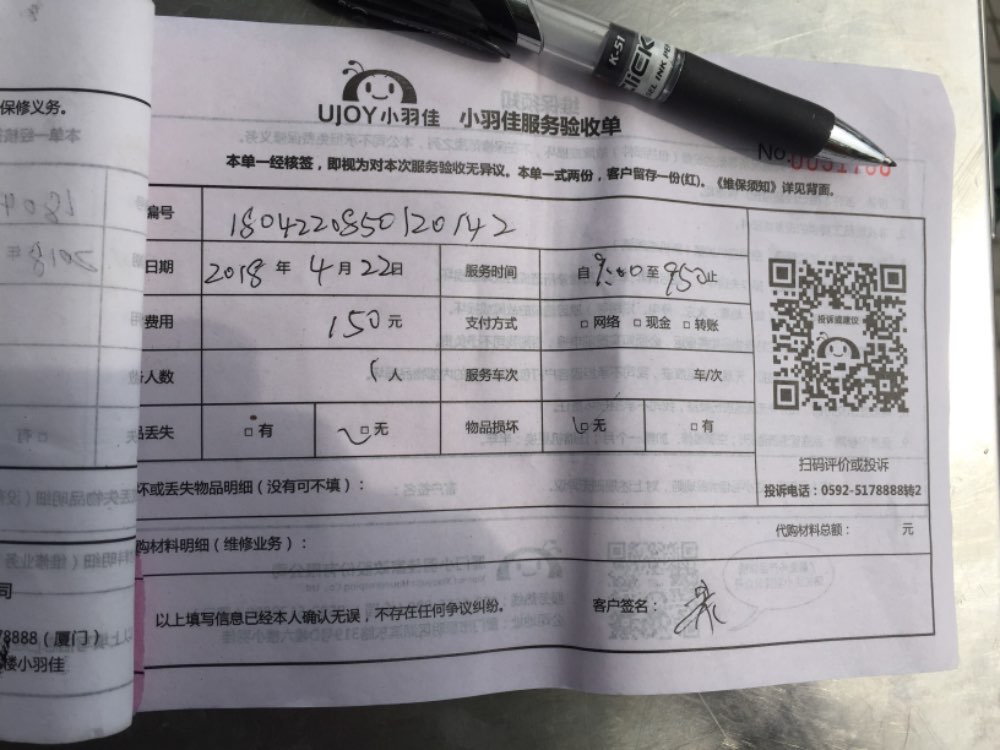 UJOY小羽佳 小羽佳服务验收单
No.
本单一经核签，即视为对本次服务验收无异议。本单一式两份，客户留存一份(红)。《维保须知》详见背面。
编号 1804220850120142
日期 2018 年 4 月 22日 服务时间 自 至 950止
费用 150 元 支付方式 □ 网络 □ 现金 □ 转账
人数 人 服务车次 车/次
丢失 □ 有 □ 无 物品损坏 □ 无 □ 有
投诉或建议
扫码评价或投诉
投诉电话：0592-5178888转2
坏或丢失物品明细（没有可不填）：
购材料明细（维修业务）： 代购材料总额： 元
以上填写信息已经本人确认无误，不存在任何争议纠纷。 客户签名：
保修义务。
司
78888（厦门）
楼小羽佳
K-51